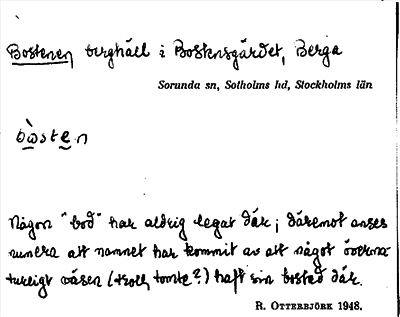 Bostenen berghäll i Bostensgärdet, Berga
Sorunda sn, Sotholms hd, Stockholms län
bòsten
Någon "bod" har aldrig legat där; däremot anses
numera att namnet har kommit av att något överna-
turligt väsen (troll, tomte?) haft sin bostad där.
R. OTTERBJÖRK 1948.